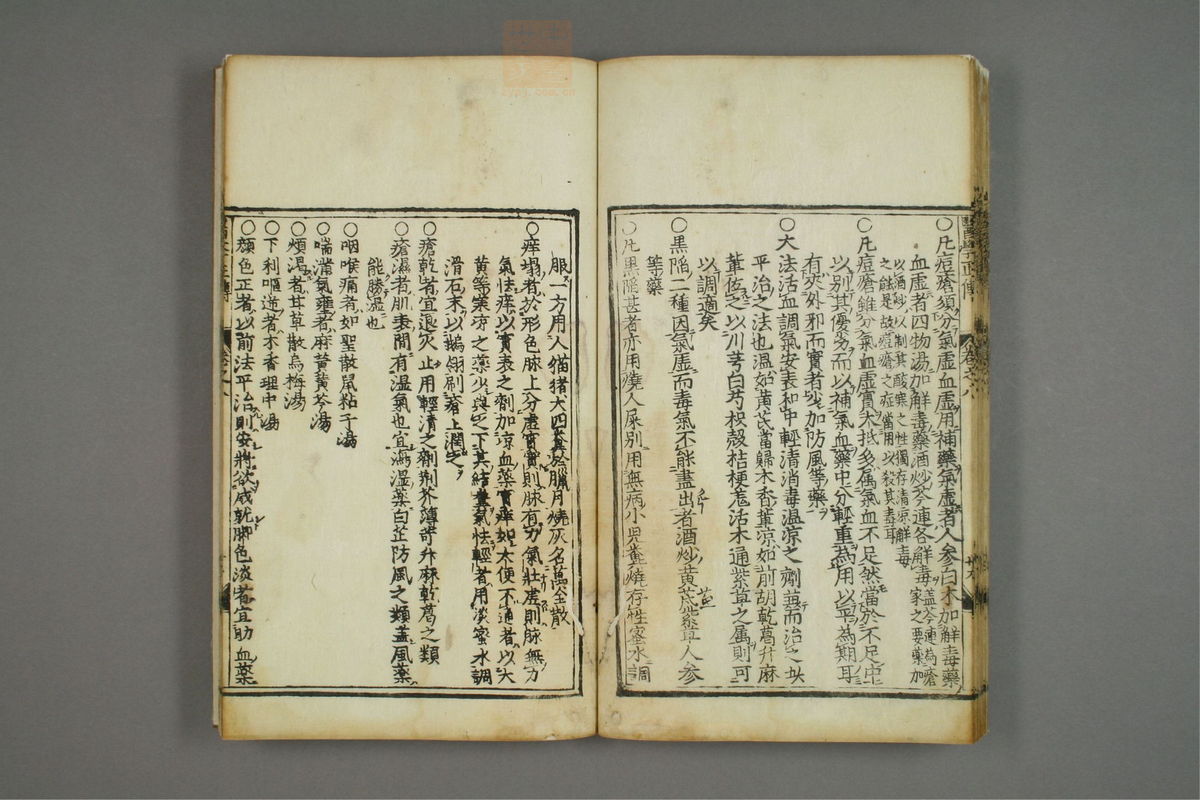 ○凡痘瘡須分氣虛血虛用補藥氣虛者人參白朮加解毒藥
血虛者四物湯加解毒藥酒炒芩連各解毒蓋芩連為瘡家之要藥加
以酒炒以制其酸寒之性獨存清凉解毒
之能是故痘瘡之症當用以殺其毒耳
○凡痘瘡雖分氣血虛實大抵多属氣血不足然當於不足中
以別其優劣而以補氣血藥中分輕重為用以平為期耳
有夾外邪而實者少加防風等藥
○大法活血調氣安表和中輕清消毒温凉之劑兼而治之此
平治之法也温如黄芪當歸木香輩凉如前胡乾葛升麻
輩佐之以川芎白芍枳殼桔梗羗活木通紫草之属則可
以調適矣
○黒陥二種因氣虛而毒氣不能盡出者酒炒黄芪紫草人参
等藥
○凡黒陥甚者亦用燒人屎別用無病小兒糞燒存性蜜水調
服一方用人猫猪犬四糞於臘月燒灰名萬全散
○痒塌者於形色脉上分虛實實則脉有力氣壯虛則脉無力
氣怯痒以實表之劑加凉血藥實痒如大便不通者以大
黄等寒凉之藥少與之下其結糞氣怯輕者用淡蜜水調
滑石末以鵝翎刷瘡上潤之
○瘡乾者宜退火止用輕清之劑荆芥薄荷升麻乾葛之類
○瘡濕者肌表間有湿氣也宜瀉湿藥白芷防風之類蓋風藥
能勝湿也
○咽喉痛者如聖散鼠粘子湯
○喘滿氣壅者麻黄黄芩湯
○煩渴者甘草散烏梅湯
○下利嘔逆者木香理中湯
○顔色正者以前法平治則安將欲成就却色淡者宜助血藥